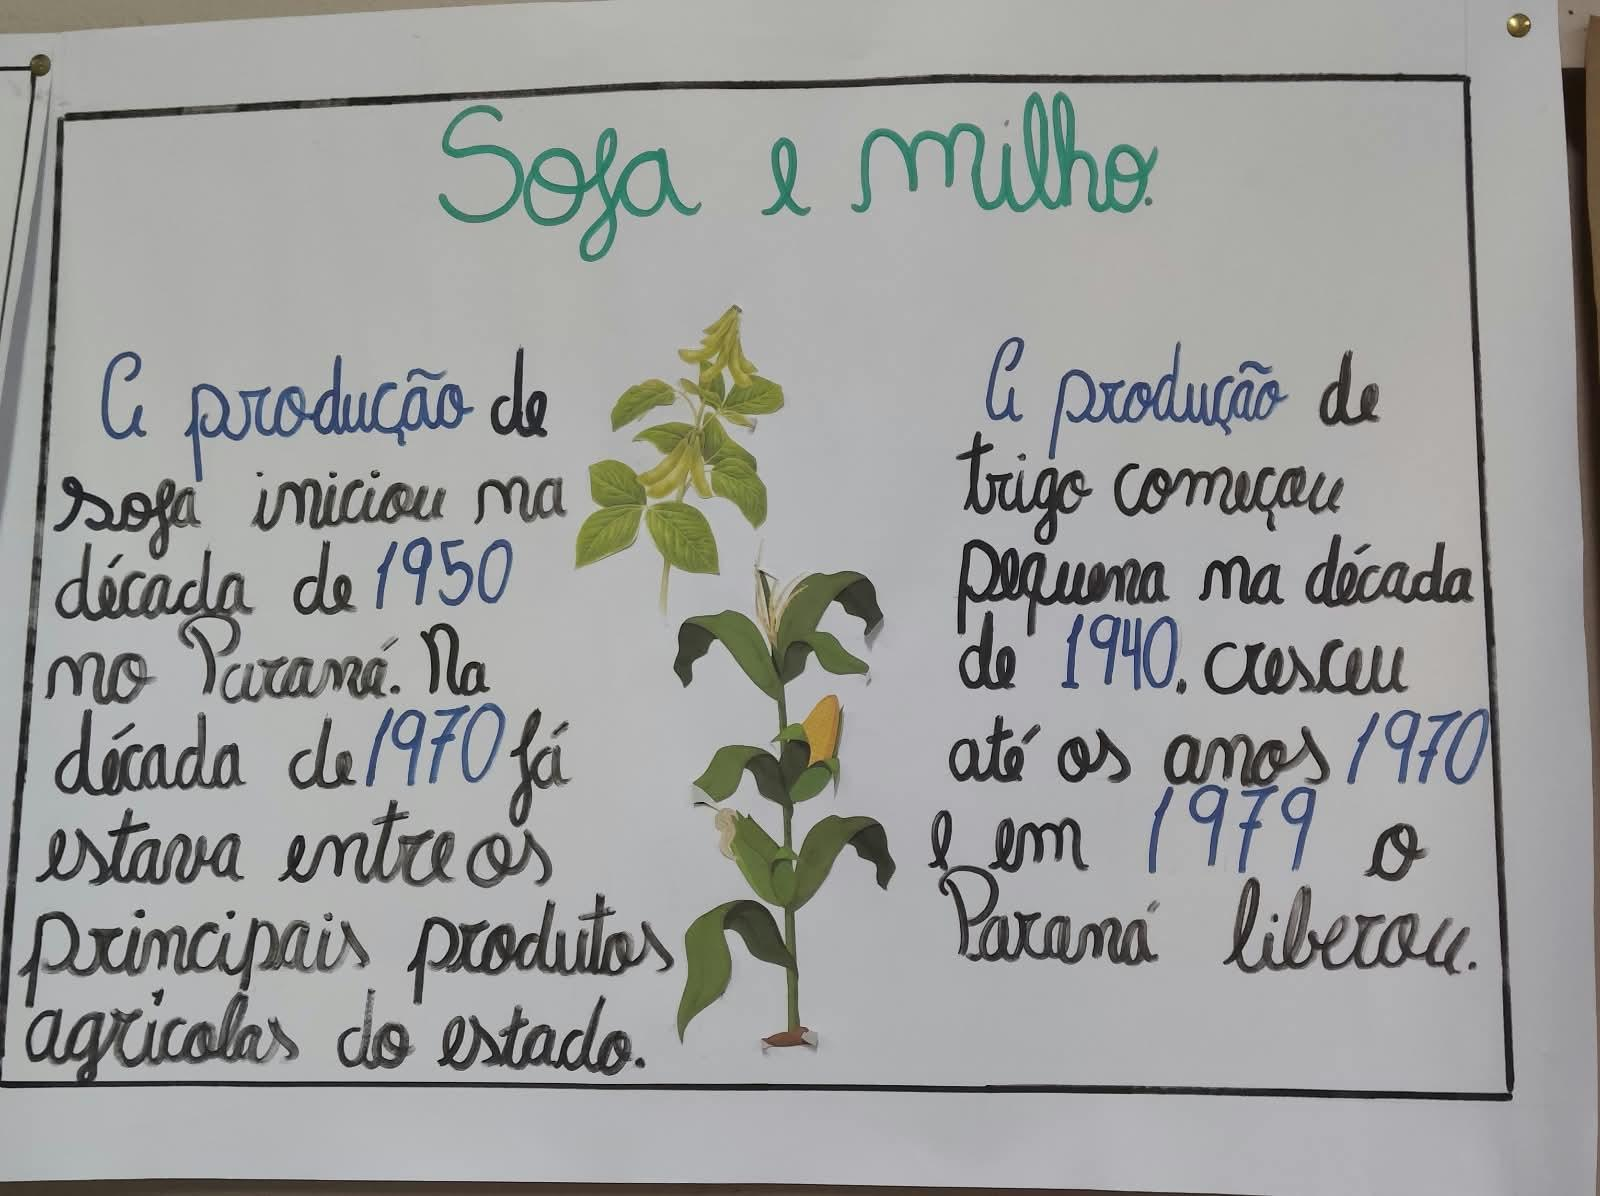 Soja e milho.
A produção de
soja iniciou na
década de 1950
no Paraná. Na
década de 1970 já
estava entre os
principais produtos
agrícolas do estado.
A produção de
trigo começou
pequena na década
de 1940. cresceu
até os anos 1970
e em 1979 o
Paraná liberou.